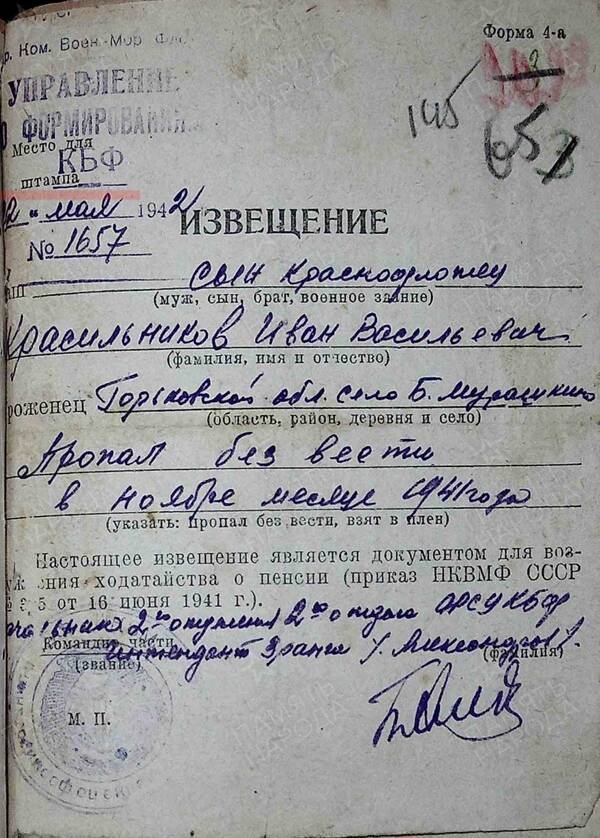 Форма 4-а
р. Ком. Воен-Мор Фло
УПРАВЛЕНИЕ
ФОРМИРОВАНИЯ
КБФ
Место для
штампа
145
653
мая 1942
ИЗВЕЩЕНИЕ
№ 1657
сын краснофлотец
(муж, сын, брат, военное звание)
Красильников Иван Васильевич
(фамилия, имя и отчество)
роженец Горьковской обл. село Б. Мурашкино
(область, район, деревня и село)
Пропал без вести
в ноябре месяце 1941 года
(указать: пропал без вести, взят в плен)
Настоящее извещение является документом для воз-
ния ходатайства о пенсии (приказ НКВМФ СССР
5 от 16 июня 1941 г.).
2го отделения 2го отдела ОРСУ КБФ
Командир части
интендант 3 ранга
(звание)
(фамилия)
М. П.